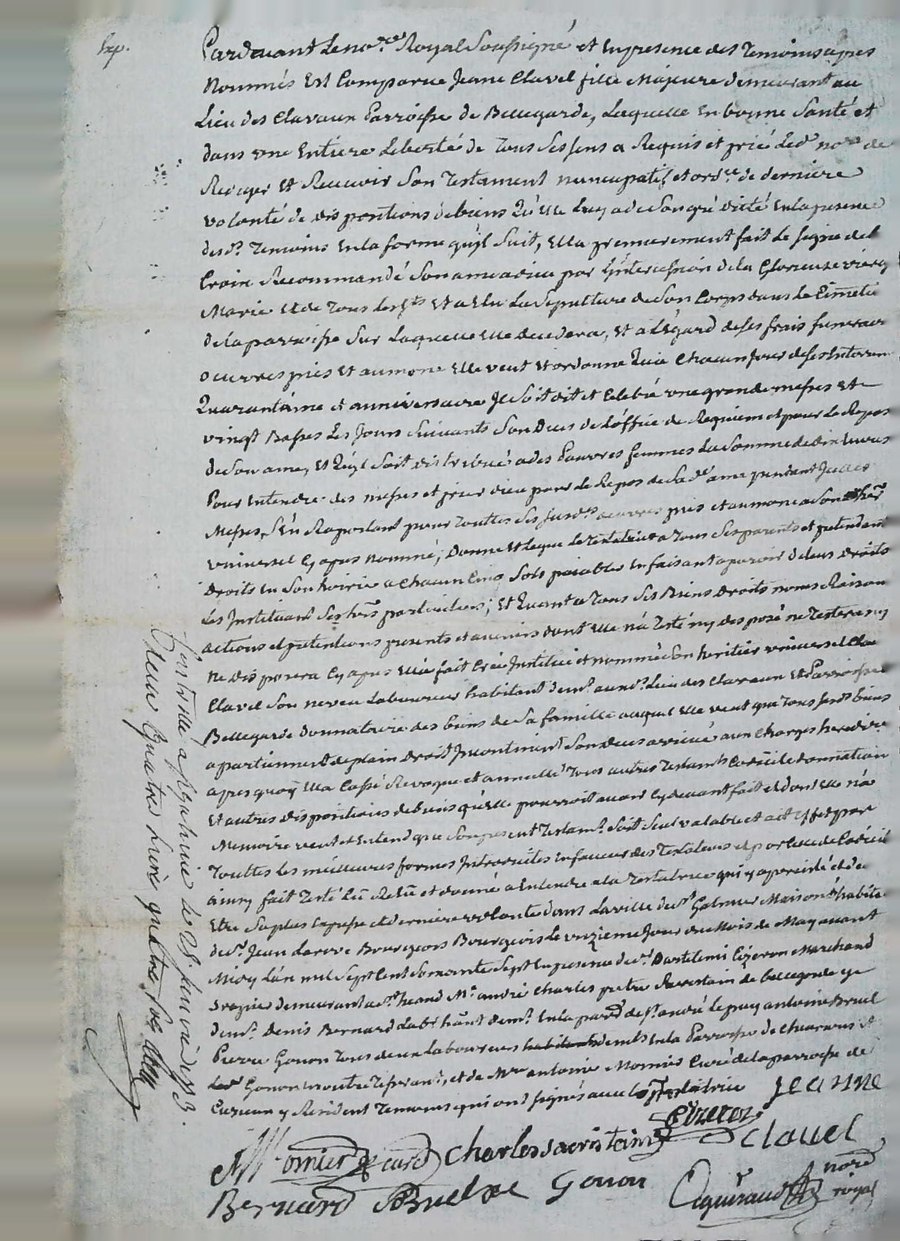 Exp.
Pardevant le no.re Royal Soussigné et En presence des Temoins apres
Nommés Est Comparue Jeane Clavel fille Majeure demeurant au
Lieu des Clavaux Parroisse de Bellegarde, Laquelle En bonne Santé et
dans une Entiere Liberté de Tous Ses Sens a Requis et prié Led. no.re de
Rediger Et Recevoir Son Testament nuncupatif et ord.re de derniere
volonté de dispositions de biens qu'Elle luy a de Son gré dicté En la presence
desd. Temoins En la forme qu'il Suit, Ella premierement fait le Signe de la
Croix Recommandé Son ame a dieu par L'intercession de la Glorieuse vierge
Marie Et de Tous les Sts Et a Elu La Sepulture de Son Corps dans Le Cimetie
de la parroisse Sur Laquelle Elle decedera, Et a L'Egard de Ses frais funeraux
oeuvres pies Et aumone Elle veut Et ordonne qu'a Chacun Jour de Ses Enterrem
Quarantaine et anniversaire Il Soit dit et Celebré une grande messes Et
vingt Basses Les Jours Suivants Son Deces de L'office de Requiem et pour Le Repos
de Son ame, Et qu'il Soit distribué a des Pauvres femmes La Somme de dix Livres
Pour Entendre des messes et prier dieu pour Le Repos de Sad.e ame pendant Icelles
Messes, S'En Raportant pour Touttes Ses Susd.s oeuvres pies et aumone a Son her
universel Cy apres nommé, Donne Et Legue La Testatrice a Tous Ses parents et pretendant
Droits En Son hoirie a Chacun Cinq Sols paiables En faisant aparoir de Leurs Droits
Les Instituant Ses hers particuliers; Et Quant a Tous Ses Biens Droits noms Raison
actions et pretentions presents et avenirs dont Elle n'a Testé ny disposé ne Testera ny
ne disposera Cy apres Elle a fait Créé Institué et nommé Son heritier universel
Clavel Son neveu Laboureur habitant dem.t aud. Lieu des Clavaux Et Parroisse
Bellegarde Donnataire des biens de Sa famille auquel Elle veut que Tous Sesd. biens
apartiennent de plain Droit Incontinent Son deces arrivé aux Charges hered.re
apres quoy Ella Cassé Revoqué et annullé Tous autres Testaments Codicile donnation
Et autres dispositions de biens qu'Elle pourroit avoir Cy devant fait et dont Elle n'a
Memoire veut et Entend que Son present Testam.t Soit Seul valable et ait Effet par
Touttes les meilleures formes Introduites En faveur des Testateurs et
ainsy fait Testé Lû Relû et donné a Entendre a La Testatrice qui y a persisté et de
Etre Sa plus Expresse et derniere volonté dans La ville de St Galmier Maison habita
de Sr. Jean Bourgeois Bourgeois Le unzieme Jour du Mois de May avant
Midy L'an mil Sept Cent Soixante Sept En presence de Sr. Bartelemi Marchand
demeurant a St. heand Mr. andré Charles pretre Sacristain de bellegarde y
dem.t Denis Bernard dem.t En La par.se de St. andré Le puy antoine Bruel
Pierre Gonon Tous deux Laboureurs dem.ts En La Parroisse de
Led. Gonon et de M.re antoine Mornier Curé de La parroisse de
Cuzieu y Resident Temoins qui ont Signés avec La Testatrice Jeanne
Clavel
A Mornier Curé Charles sacristain
Bernard ABruel Gonon no.re
royal
Controllé a St galmier Le 25. Janvier 1773.
Reçu Quatre Livre quatre Sols